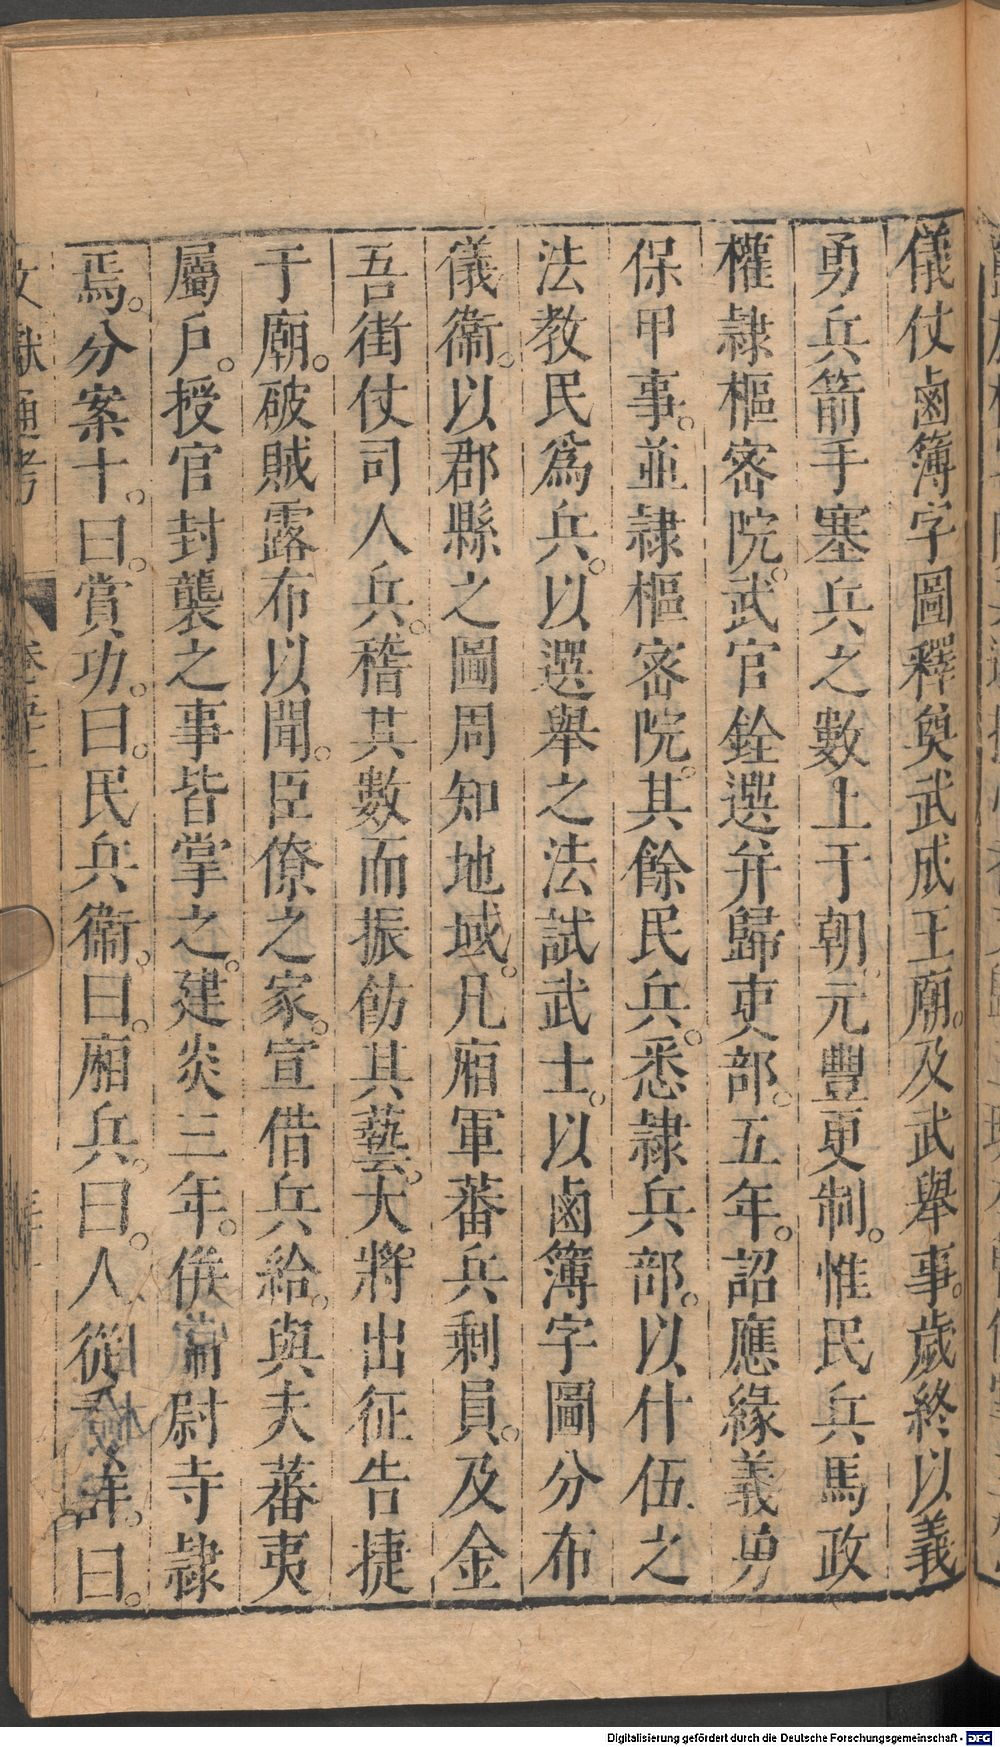 儀仗鹵簿字圖釋奠武成王廟。及武舉事。歲終以義
勇兵箭手塞兵之數上于朝。元豐更制。惟民兵馬政
權隷樞密院。武官銓選并歸吏部。五年。詔應緣義勇
保甲事。並隷樞密院。其餘民兵。悉隷兵部。以什伍之
法教民爲兵。以選舉之法試武士。以鹵簿字圖分布
儀衞。以郡縣之圖周知地域。凡廂軍蕃兵剩員。及金
吾街仗司人兵。稽其數而振飭其藝。大將出征告捷
于廟。破賊露布以聞。臣僚之家。宣借兵給。與夫蕃夷
屬戶。授官封襲之事皆掌之。建炎三年。倂衞尉寺隷
焉。分案十。曰。賞功。曰。民兵衞。曰。廂兵。曰。人從看詳。曰。
文獻通考
Digitalisierung gefördert durch die Deutsche Forschungsgemeinschaft - DFG